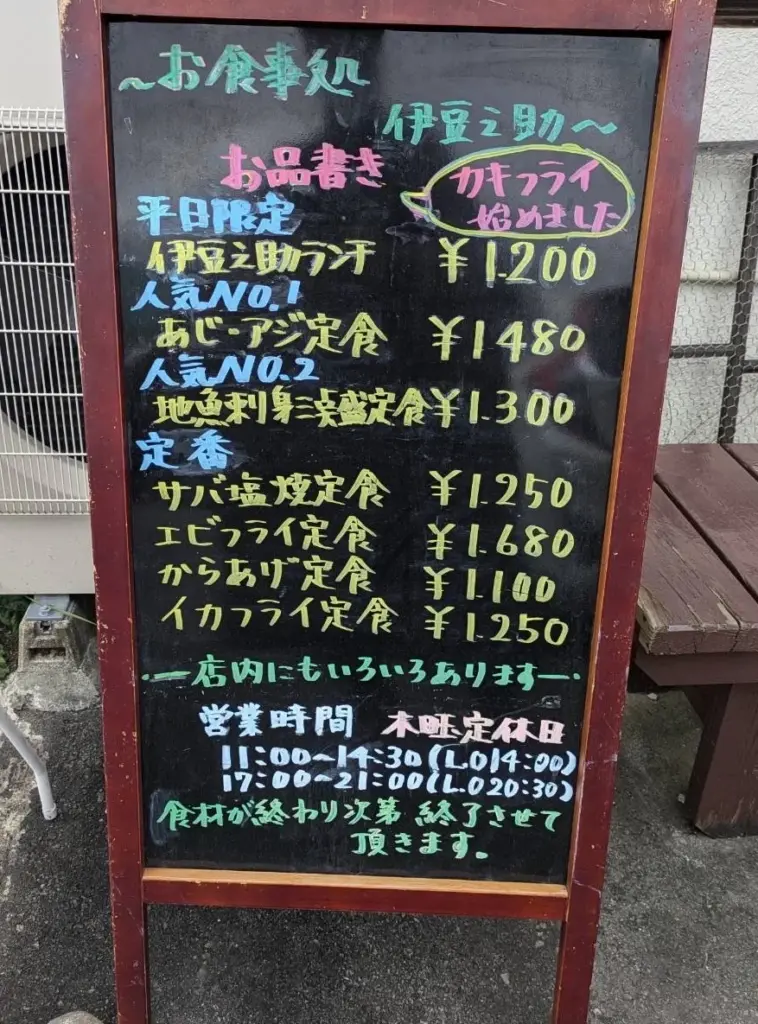 ～お食事処
伊豆之助～
お品書き
カキフライ
始めました
平日限定
伊豆之助ランチ ￥1.200
人気NO.1
あじ・アジ定食 ￥1480
人気NO.2
地魚刺身三点盛定食￥1.300
定番
サバ塩焼定食 ￥1.250
エビフライ定食 ￥1.680
からあげ定食 ￥1.100
イカフライ定食 ￥1.250
・ー店内にもいろいろありますー・
営業時間 木曜定休日
11:00～14:30(L.O14:00)
17:00～21:00(L.O20:30)
食材が終わり次第 終了させて
頂きます。